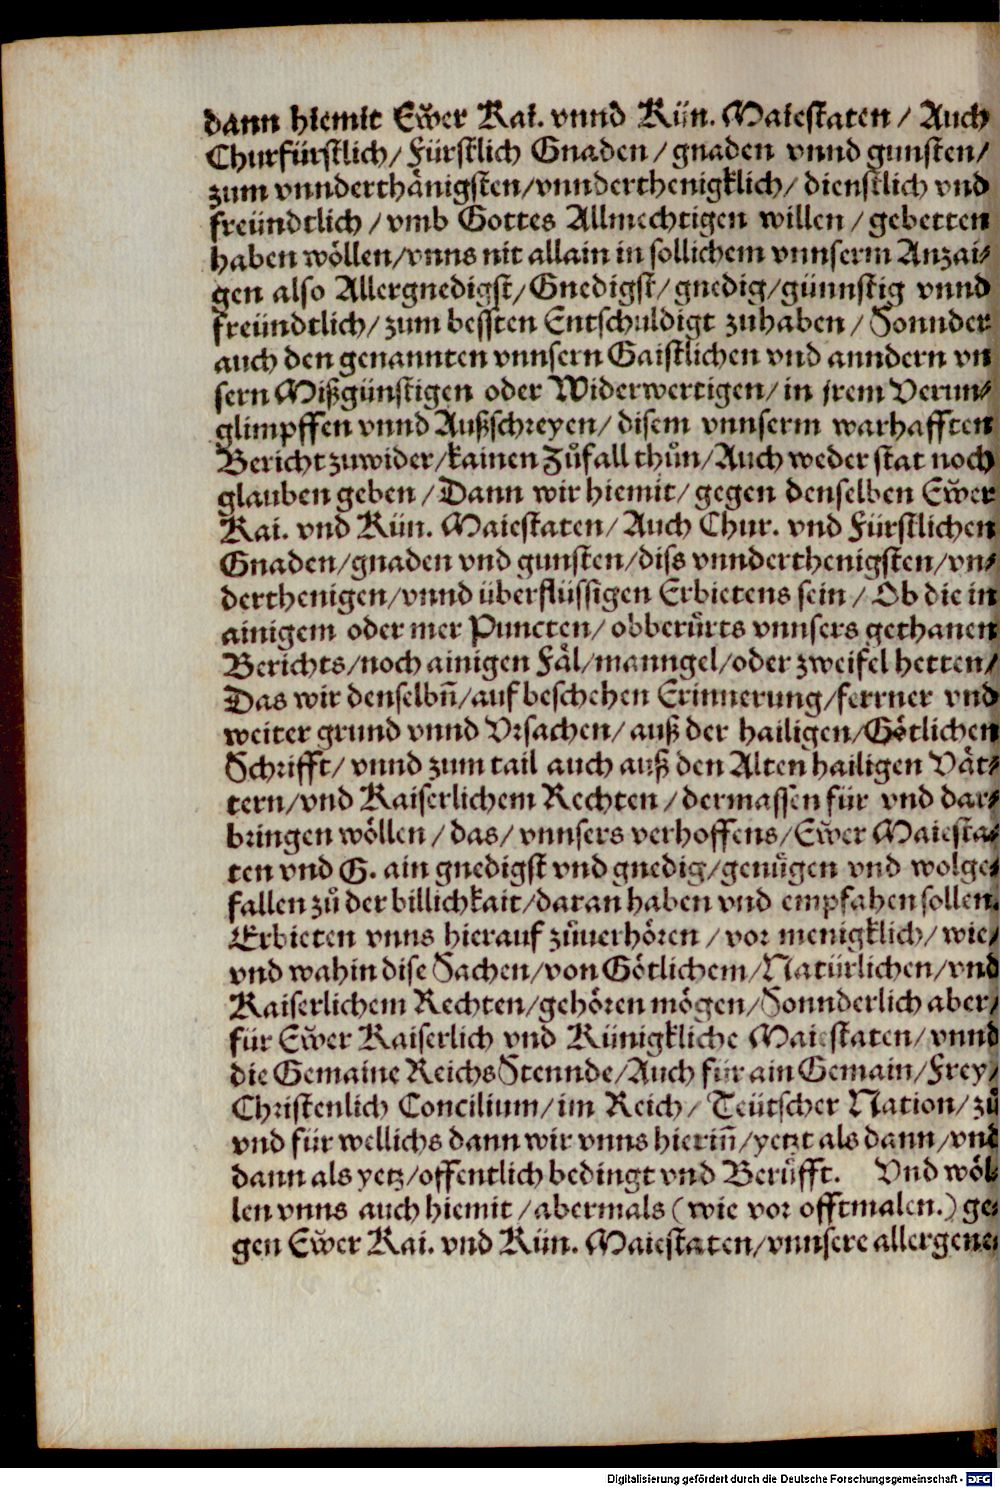 dann hiemit Ewͤer Kai. vnnd Kün. Maiestaten / Auch
Churfürstlich / Fürstlich Gnaden / gnaden vnnd gunsten /
zum vnnderthänigsten / vnnderthenigklich / dienstlich vnd
freündtlich / vmb Gottes Allmechtigen willen / gebetten
haben wöllen / vnns nit allain in sollichem vnnserm Anzai⸗
gen also Allergnedigst / Gnedigst / gnedig / günnstig vnnd
freündtlich / zum bessten Entschuldigt zuhaben / Sonnder
auch den genannten vnnsern Gaistlichen vnd anndern vn
sern Mißgünstigen oder Widerwertigen / in jrem Verun⸗
glimpffen vnnd Außschreyen / disem vnnserm warhafften
Bericht zuwider / kainen Zůfall thůn / Auch weder stat noch
glauben geben / Dann wir hiemit / gegen denselben Ewͤer
Kai. vnd Kün. Maiestaten / Auch Chur. vnd Fürstlichen
Gnaden / gnaden vnd gunsten / diss vnnderthenigsten / vn⸗
derthenigen / vnnd überflüssigen Erbietens sein / Ob die in
ainigem oder mer Puncten / obberürts vnnsers gethanen
Berichts / noch ainigen Fäl / manngel / oder zweifel hetten /
Das wir denselbn̄ / auf beschehen Erinnerung / ferrner vnd
weiter grund vnnd Vrsachen / auß der hailigen / Götlichen
Schrifft / vnnd zum tail auch auß den Alten hailigen Vät⸗
tern / vnd Kaiserlichem Rechten / dermassen für vnd dar⸗
bringen wöllen / das / vnnsers verhoffens / Ewͤer Maiesta⸗
ten vnd G. ain gnedigst vnd gnedig / genügen vnd wolge⸗
fallen zů der billichkait / daran haben vnd empfahen sollen.
Erbieten vnns hierauf zůuerhören / vor menigklich / wie /
vnd wahin dise Sachen / von Götlichem / Natürlichen / vnd
Kaiserlichem Rechten / gehören mögen / Sonnderlich aber /
für Ewͤer Kaiserlich vnd Künigkliche Maiestaten / vnnd
die Gemaine Reichs Stennde / Auch für ain Gemain / Frey /
Christenlich Concilium / im Reich / Teütscher Nation / zů
vnd für wellichs dann wir vnns hierin̄ / yetzt als dann / vnd
dann als yetz / offentlich bedingt vnd Berüfft. Vnd wöl⸗
len vnns auch hiemit / abermals (wie vor offtmalen.) ge⸗
gen Ewͤer Kai. vnd Kün. Maiestaten / vnnsere allergene⸗
Digitalisierung gefördert durch die Deutsche Forschungsgemeinschaft - DFG